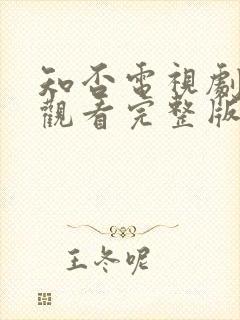 知否電視劇
觀看完整版
王冬呢